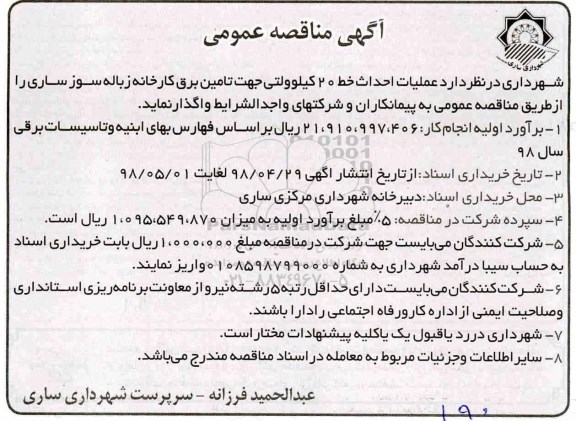 آگهی مناقصه عمومی
شهرداری ساری
شهرداری در نظر دارد عملیات احداث خط ۲۰ کیلوولتی جهت تامین برق کارخانه زباله سوز ساری را
از طریق مناقصه عمومی به پیمانکاران و شرکتهای واجد الشرایط واگذار نماید.
۱- برآورد اولیه انجام کار: ۲۱،۹۱۰،۹۹۷،۴۰۶ ریال بر اساس فهارس بهای ابنیه و تاسیسات برقی
سال ۹۸
۲- تاریخ خریداری اسناد: از تاریخ انتشار اگهی ۹۸/۰۴/۲۹ لغایت ۹۸/۰۵/۰۱
۳- محل خریداری اسناد: دبیرخانه شهرداری مرکزی ساری
۴- سپرده شرکت در مناقصه: ۵٪ مبلغ برآورد اولیه به میزان ۱،۰۹۵،۵۴۹،۸۷۰ ریال است.
۵- شرکت کنندگان می‌بایست جهت شرکت در مناقصه مبلغ ۱،۰۰۰،۰۰۰ ریال بابت خریداری اسناد
به حساب سیبا درآمد شهرداری به شماره ۰۱۰۸۵۹۸۷۹۹۰۰۰ واریز نمایند.
۶- شرکت کنندگان می‌بایست دارای حداقل رتبه ۵ رشته نیرو از معاونت برنامه ریزی استانداری
وصلاحیت ایمنی از اداره کار و رفاه اجتماعی را دارا باشند.
۷- شهرداری در رد یا قبول یک یا کلیه پیشنهادات مختار است.
۸- سایر اطلاعات و جزئیات مربوط به معامله در اسناد مناقصه مندرج می‌باشد.
عبدالحمید فرزانه - سرپرست شهرداری ساری
۱۹۰